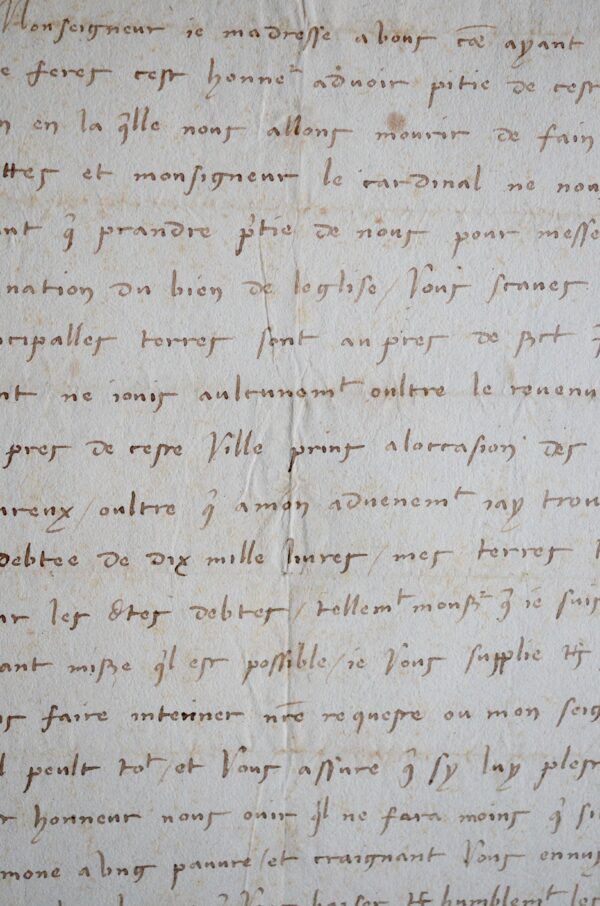 Monseigneur ie madresse a vous coe ayant
e feres cest honner advoir pitie de cest
n en la qlle nous allons mourir de fain
ttes et monsigneur le cardinal ne nou
ant q prandre ptie de nous pour messe
nation du bien de leglise / Vous scaves
ncipalles terres sont au pres de
nt ne iouis aulcunemt oultre le revenu
pres de ceste Ville prins aloccasion des
ureux / oultre q a mon advenemt iay trou
debtee de dix mille livres / mes terres
ur les dtes debtes / tellemt monsr q ie suis
ant qil est possible / ie Vous supplie
us faire interiner nre requeste ou mon seig
l peult tot / et Vous assure q sy luy ples
r honneur nous ouir ql ne fara moins q si
mone a ung pauvre / et craignant Vous ennuy
q Vous baiser humblemt les